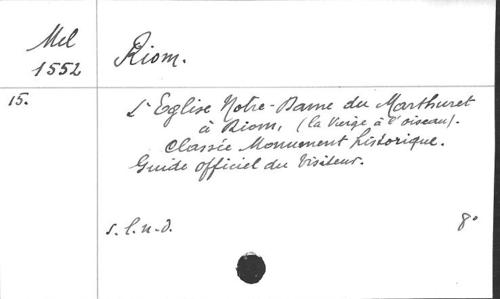 Mel
1552
Riom.
15.
L'Eglise Notre-Dame du Marthuret
à Riom, (la Vierge à l'oiseau).
Classée Monument historique.
Guide officiel du Visiteur.
s.l.n.d.
8°